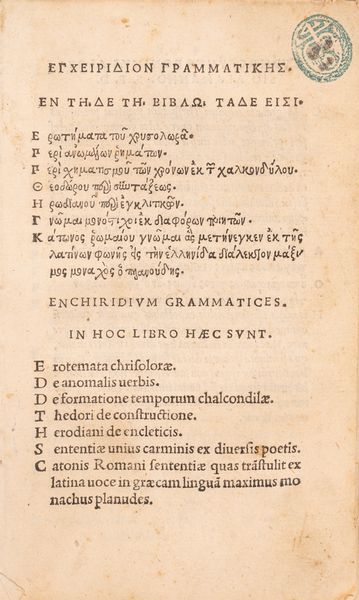 ΕΓΧΕΙΡΙΔΙΟΝ ΓΡΑΜΜΑΤΙΚΗΣ.
ΕΝ ΤΗ.ΔΕ ΤΗ. ΒΙΒΛΩ. ΤΑΔΕ ΕΙΣΙ.
Ερωτήματα τοῦ χρυσολωρᾶ.
Περὶ ἀνωμάλων ῥημάτων.
Περὶ χηματισμοῦ τῶν χρόνων ἐκ τ͂ χαλκονδύλου.
Θεοδώρου περὶ συντάξεως.
Ηρωδιανοῦ περὶ ἐγκλιτικῶν.
Γνῶμαι μονόστιχοι ἐκ διαφόρων ποιητῶν.
Κάτωνος ῥωμαίου γνῶμαι ἃς μετήνεγκεν ἐκ τῆς
λατίνων φωνῆς εἰς τὴν ἑλληνίδα διάλεκτον μάξι
μος μοναχὸς ὁ πλανούδης.
ENCHIRIDIVM GRAMMATICES.
IN HOC LIBRO HÆC SVNT.
Erotemata chrisoloræ.
De anomalis uerbis.
De formatione temporum chalcondilæ.
Thedori de constructione.
Herodiani de encleticis.
Sententiæ unius carminis ex diuersis poetis.
Catonis Romani sententiæ quas trãstulit ex
latina uoce in græcam linguã maximus mo
nachus planudes.